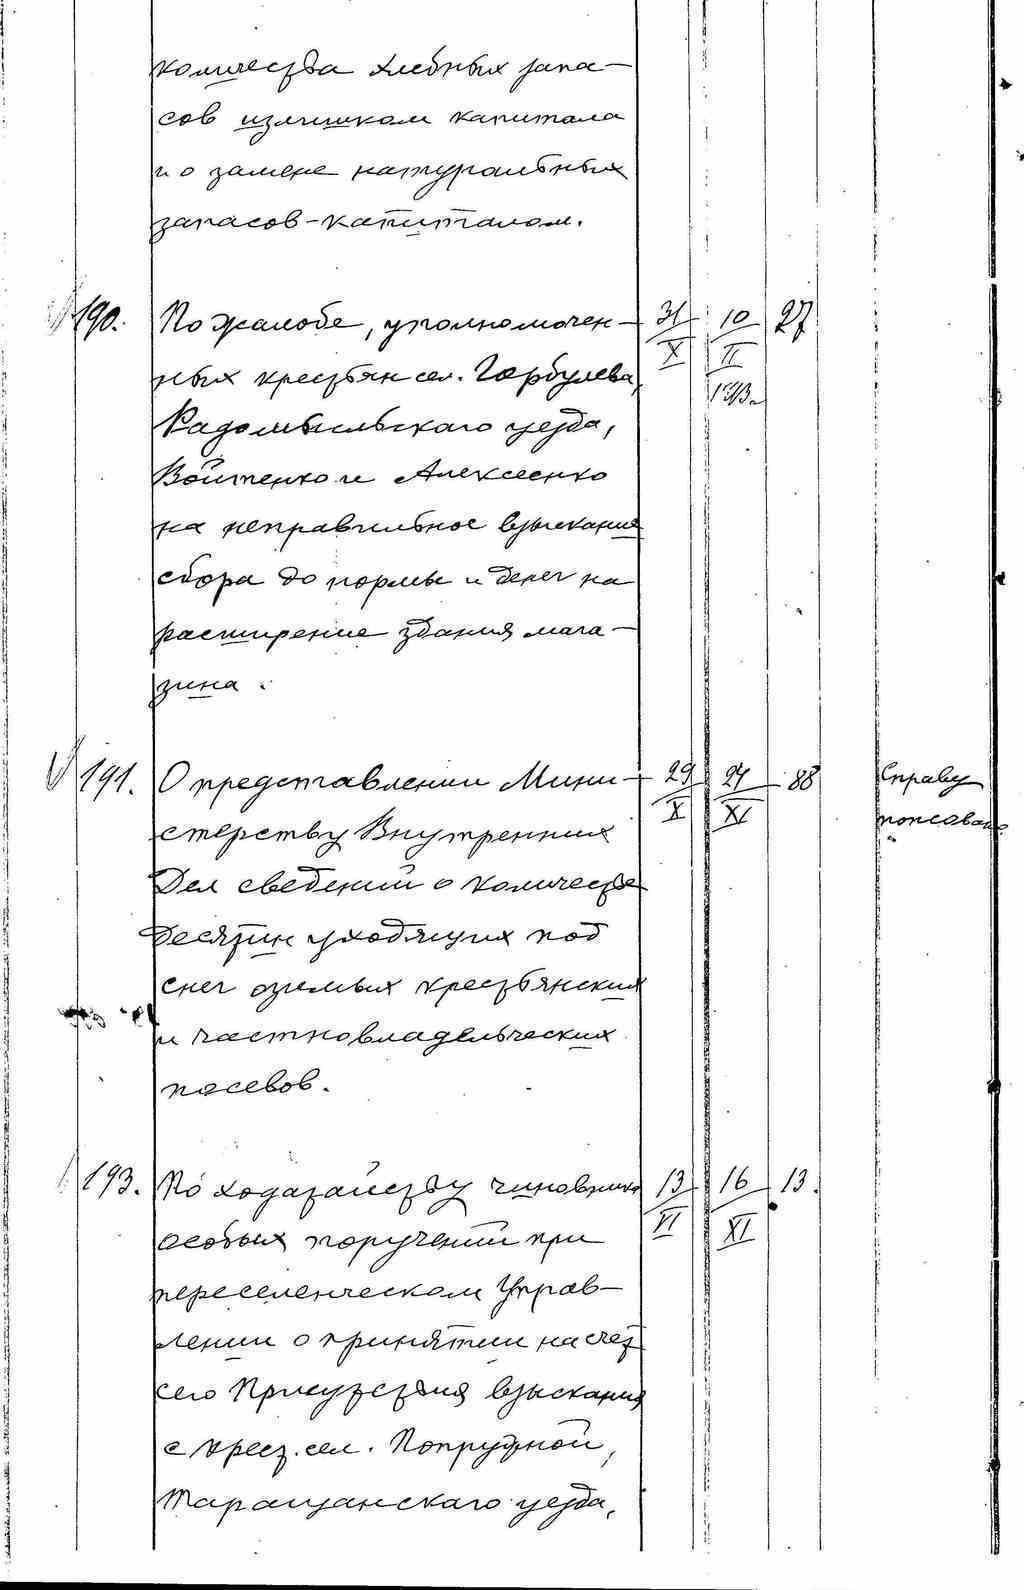 количества хлебных запа-
сов излишком капитала
и о замене натуральных
запасов-капиталом.
190. По жалобе, уполномочен- 31/X 10/II 1913г. 27
ных крестьян сел. Горбулева,
Радомысльскаго уезда,
Войтенко и Алексеенко
на неправильное взыскания
сбора до нормы и денег на
расширение здания мага-
зина.
191. О представлении Мини- 29/X 24/XI 88 Справу
стерству Внутренних
Дел сведений о количестве
десятин уходящих под
снег озимых крестьянских
и частновладельческих
посевов.
193. По ходатайству чиновника 13/VI 16/XI 13.
особых поручений при
переселенческом Управ-
лении о принятии на счет
сего Присутствия взыскания
с крест. сел. Попружной,
Таращанскаго уезда,